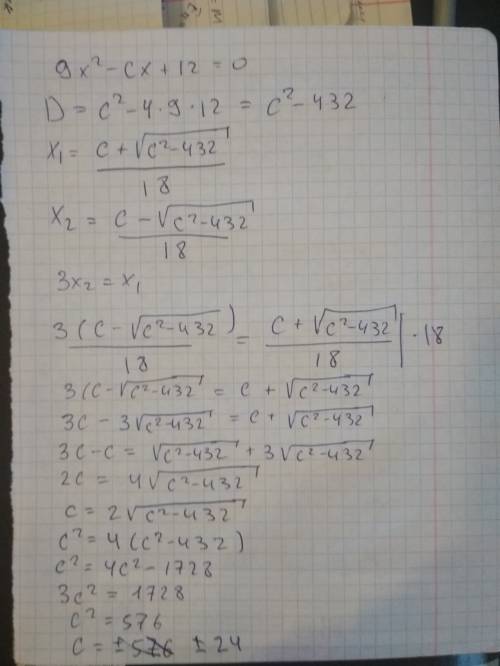 9x² - cx + 12 = 0
D = c² - 4·9·12 = c² - 432
x₁ = (c + √(c² - 432)) / 18
x₂ = (c - √(c² - 432)) / 18
3x₂ = x₁
3(c - √(c² - 432)) / 18 = (c + √(c² - 432)) / 18 | · 18
3(c - √(c² - 432) = c + √(c² - 432)
3c - 3√(c² - 432) = c + √(c² - 432)
3c - c = √(c² - 432) + 3√(c² - 432)
2c = 4√(c² - 432)
c = 2√(c² - 432)
c² = 4(c² - 432)
c² = 4c² - 1728
3c² = 1728
c² = 576
c = ±576 ±24